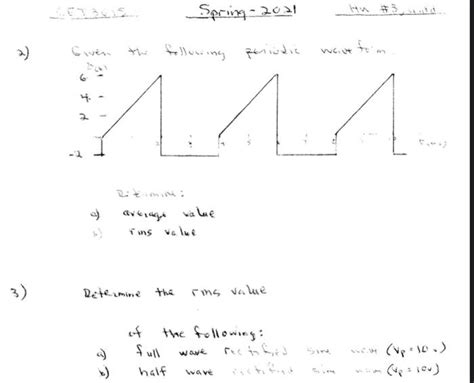 SET 3625 Spring - 2021 HW #3
2) Given the following periodic waveform.
6
4
2
-2
Determine:
a) average value
b) rms value
3) Determine the rms value
of the following:
a) full wave rectified sine wave (Vp = 10v)
b) half wave rectified sine wave (Vp = 10v)